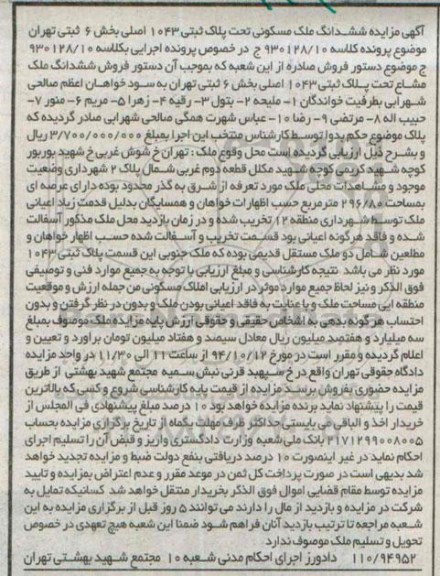 آگهی مزایده ششدانگ ملک مسکونی تحت پلاک ثبتی ۱۰۴۳ اصلی بخش ۶ ثبتی تهران
موضوع پرونده کلاسه ۹۳۰۱۲۸/۱۰ ج در خصوص پرونده اجرایی بکلاسه ۹۳۰۱۲۸/۱۰
ج موضوع دستور فروش صادره از این شعبه که بموجب آن دستور فروش ششدانگ ملک
مشاع تحت پلاک ثبتی ۱۰۴۳ اصلی بخش ۶ ثبتی تهران به سود خواهان اعظم صالحی
شهرابی بطرفیت خواندگان ۱- ملیحه ۲- بتول ۳- رقیه ۴- زهرا ۵- مریم ۶- منور ۷-
حبیب اله ۸- مرتضی ۹- رضا ۱۰- عباس شهرت همگی صالحی شهرابی صادر گردیده که
پلاک موضوع حکم بدوا توسط کارشناس منتخب این اجرا بمبلغ ۳/۷۰۰/۰۰۰/۰۰۰ ریال
و بشرح ذیل ارزیابی گردیده است محل وقوع ملک : تهران خ شوش غربی خ شهید پورپور
کوچه شهید کریمی کوچه شهید مکلل قطعه دوم غربی شمال پلاک ۲ شهرداری وضعیت
موجود و مشاهدات محلی ملک مورد تعرفه از شرق به گذر محدود بوده دارای عرصه ای
بمساحت ۲۹۶/۸۰ مترمربع حسب اظهارات خواهان و همسایگان بدلیل قدمت زیاد اعیانی
ملک توسط شهرداری منطقه ۱۲ تخریب شده و در زمان بازدید محل ملک مذکور آسفالت
شده و فاقد هرگونه اعیانی بود قسمت تخریب و آسفالت شده حسب اظهار خواهان و
مطلعین شامل دو ملک مستقل قدیمی بوده که ملک جنوبی این قسمت پلاک ثبتی ۱۰۴۳
مورد نظر می باشد نتیجه کارشناسی و مبلغ ارزیابی با توجه به جمیع موارد فنی و توصیفی
فوق الذکر و نیز لحاظ جمیع موارد موثر در ارزیابی املاک مسکونی من جمله ارزش و موقعیت
منطقه ایی مساحت ملک و با عنایت به فاقد اعیانی بودن ملک و بدون در نظر گرفتن و بدون
احتساب هرگونه بدهی به اشخاص حقیقی و حقوقی ارزش پایه مزایده ملک موصوف بمبلغ
سه میلیارد و هفتصد میلیون ریال معادل سیصد و هفتاد میلیون تومان برآورد و تعیین و
اعلام گردیده و مقرر است در مورخ ۹۴/۱۰/۱۲ از ساعت ۱۱ الی ۱۱/۳۰ در واحد مزایده
دادگاه حقوقی تهران واقع در خ سپهبد قرنی نبش سمیه مجتمع شهید بهشتی از طریق
مزایده حضوری بفروش برسد مزایده از قیمت پایه کارشناسی شروع و کسی که بالاترین
قیمت را پیشنهاد نماید برنده مزایده خواهد بود ۱۰ درصد مبلغ پیشنهادی فی المجلس از
خریدار اخذ و الباقی می بایستی حداکثر ظرف مهلت یکماه از تاریخ برگزاری مزایده بحساب
۲۱۷۱۲۹۹۰۰۸۰۰۵ بانک ملی شعبه وزارت دادگستری واریز و قبض آن را تسلیم اجرای
احکام نماید در غیر اینصورت ۱۰ درصد دریافتی بنفع دولت ضبط و مزایده تجدید خواهد
شد بدیهی است در صورت پرداخت کل ثمن در موعد مقرر و عدم اعتراض بمزایده و تایید
مزایده توسط مقام قضایی اموال فوق الذکر بخریدار منتقل خواهد شد کسانیکه تمایل به
شرکت در مزایده و بازدید از مال را دارند می توانند ۵ روز قبل از برگزاری مزایده به این
شعبه مراجعه تا ترتیب بازدید آنان فراهم شود ضمنا این شعبه هیچ تعهدی در خصوص
تحویل و تسلیم ملک موصوف ندارد
۱۱۰/۹۴۹۵۲ دادورز اجرای احکام مدنی شعبه ۱۰ مجتمع شهید بهشتی تهران